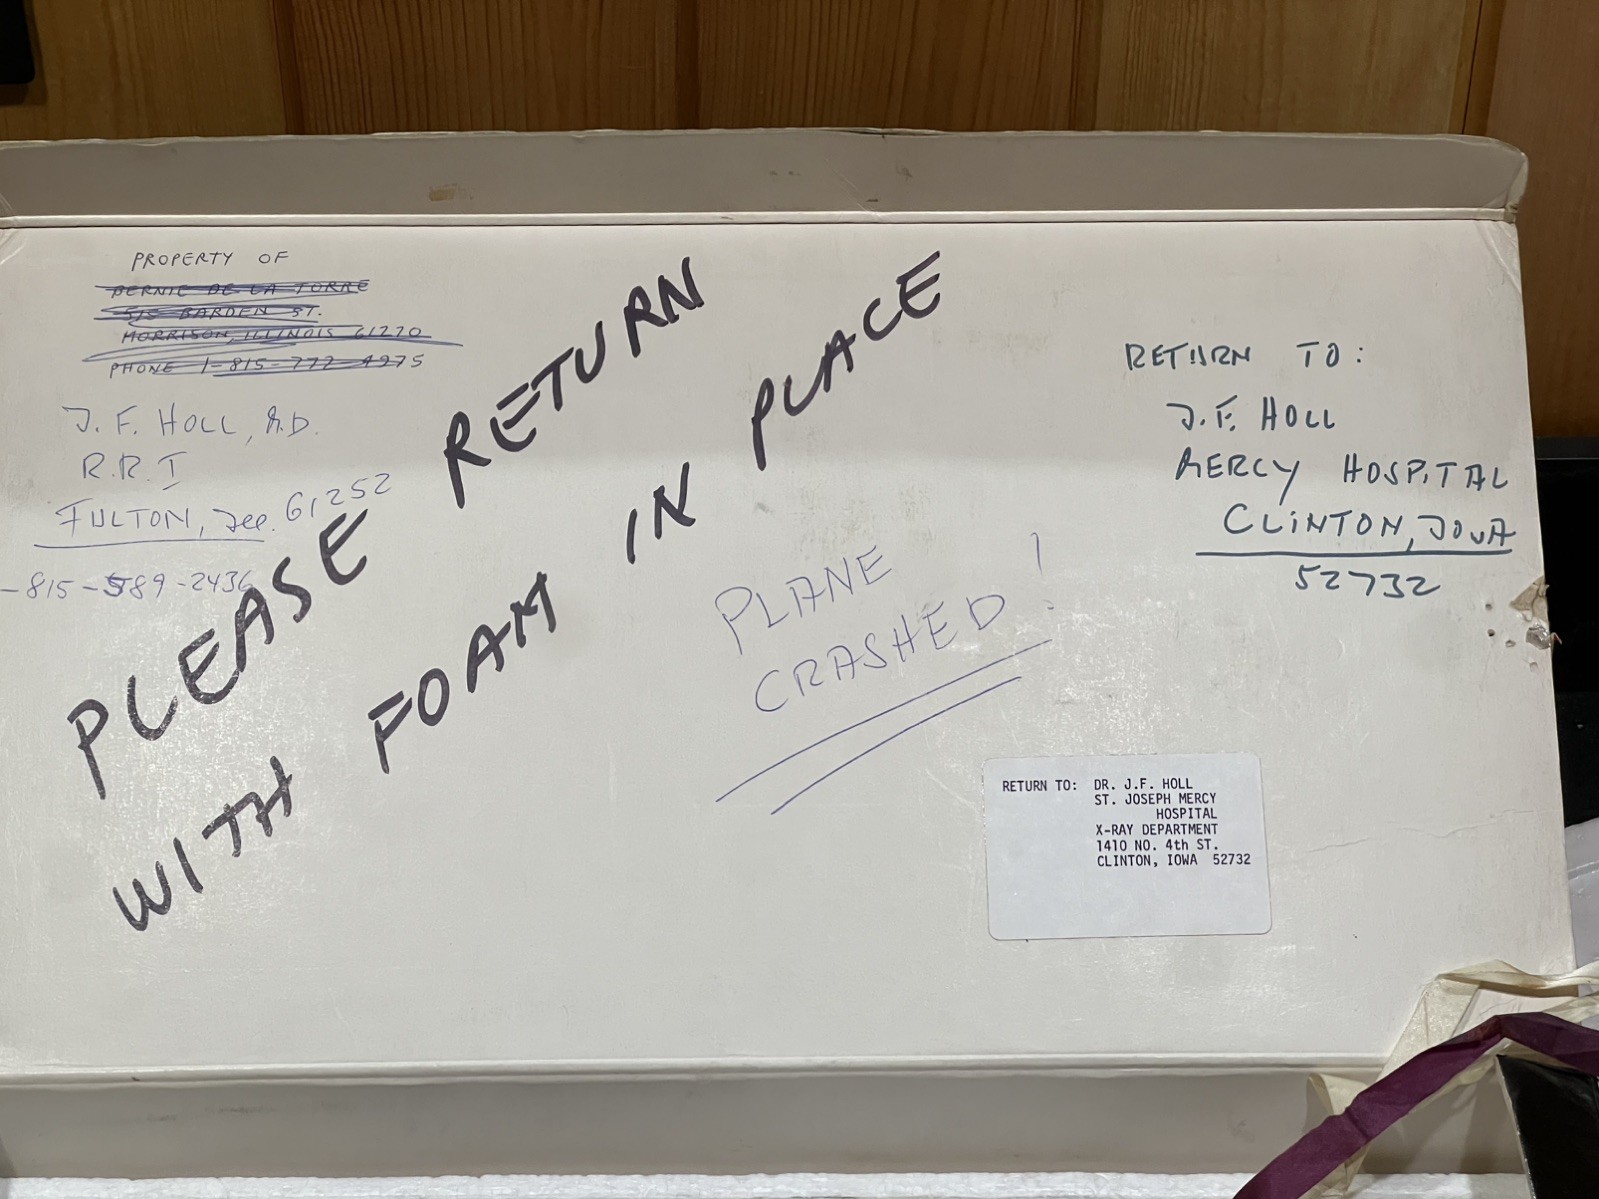 PROPERTY OF
BERNIE DE LA TORRE
515 BARDEN ST.
MORRISON, ILLINOIS 61270
PHONE 1-815-772-4975
J. F. HOLL, M.D.
R.R. I
FULTON, Ill. 61252
-815-589-2436
PLEASE RETURN
WITH FOAM IN PLACE
PLANE
CRASHED!
RETURN TO:
J.F. HOLL
MERCY HOSPITAL
CLINTON, IOWA
52732
RETURN TO: DR. J.F. HOLL
ST. JOSEPH MERCY
HOSPITAL
X-RAY DEPARTMENT
1410 NO. 4th ST.
CLINTON, IOWA 52732